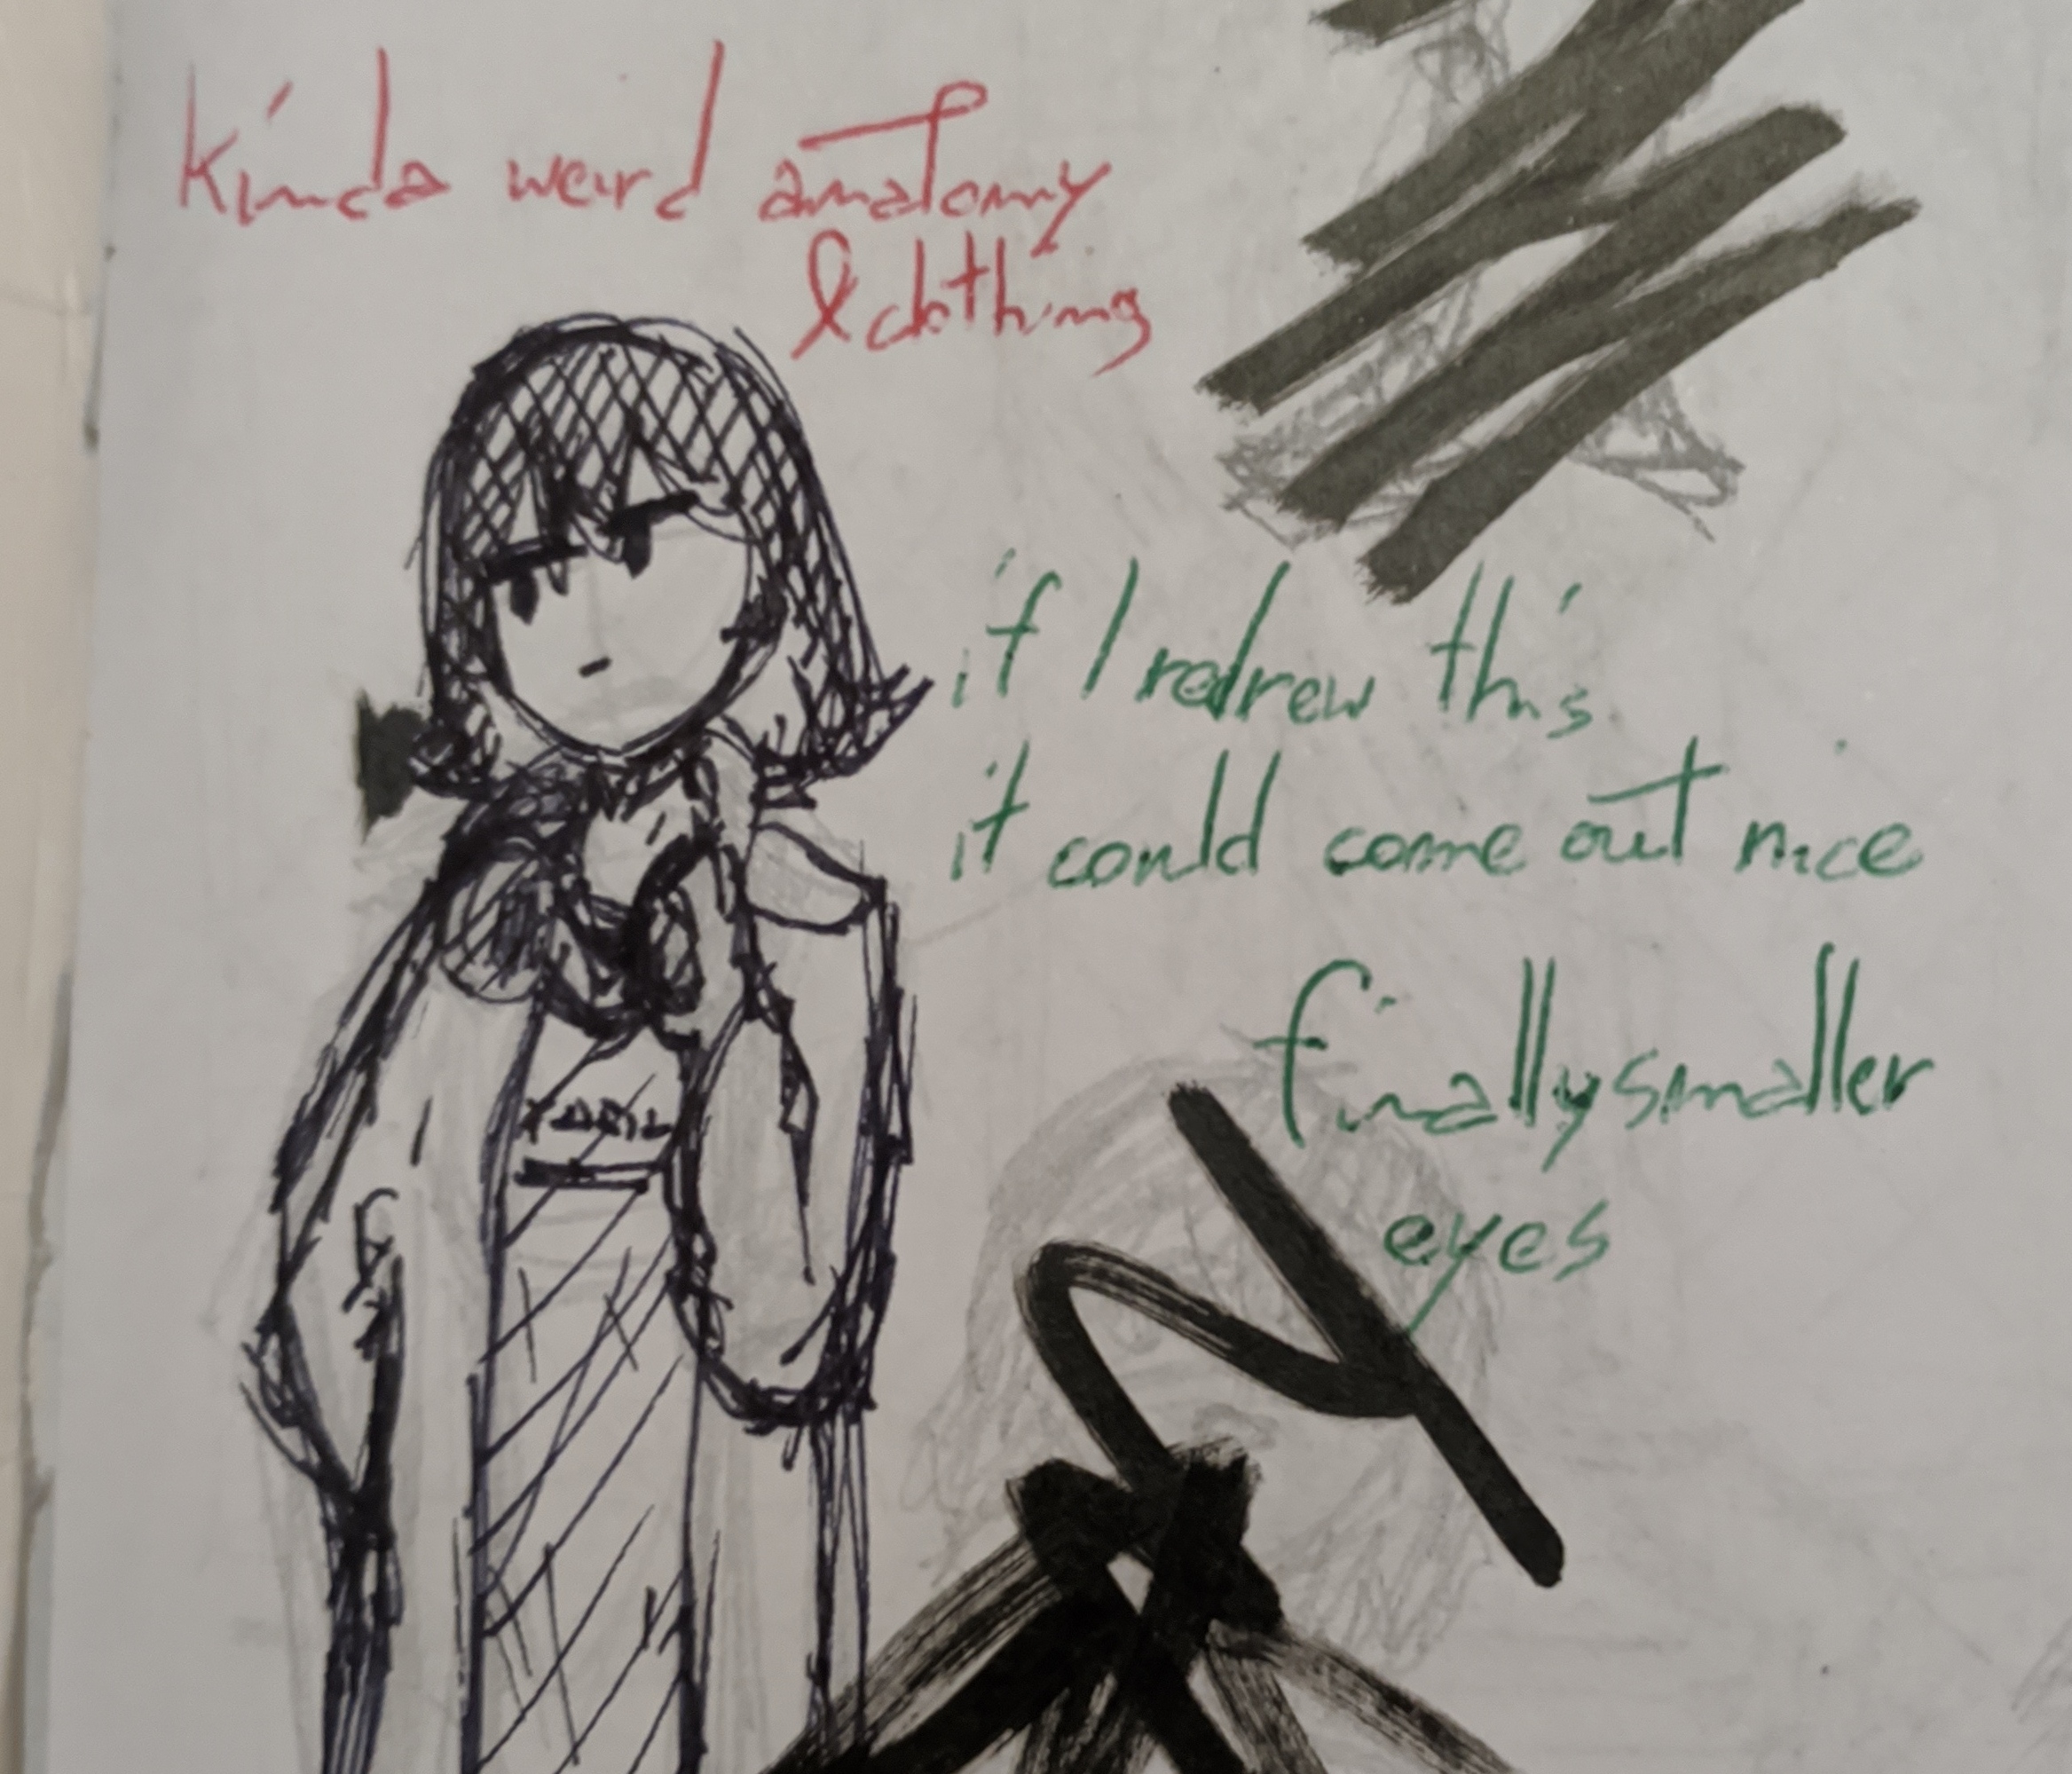 Kinda weird anatomy
& clothing
if I redrew this
it could come out nice
finally smaller
eyes